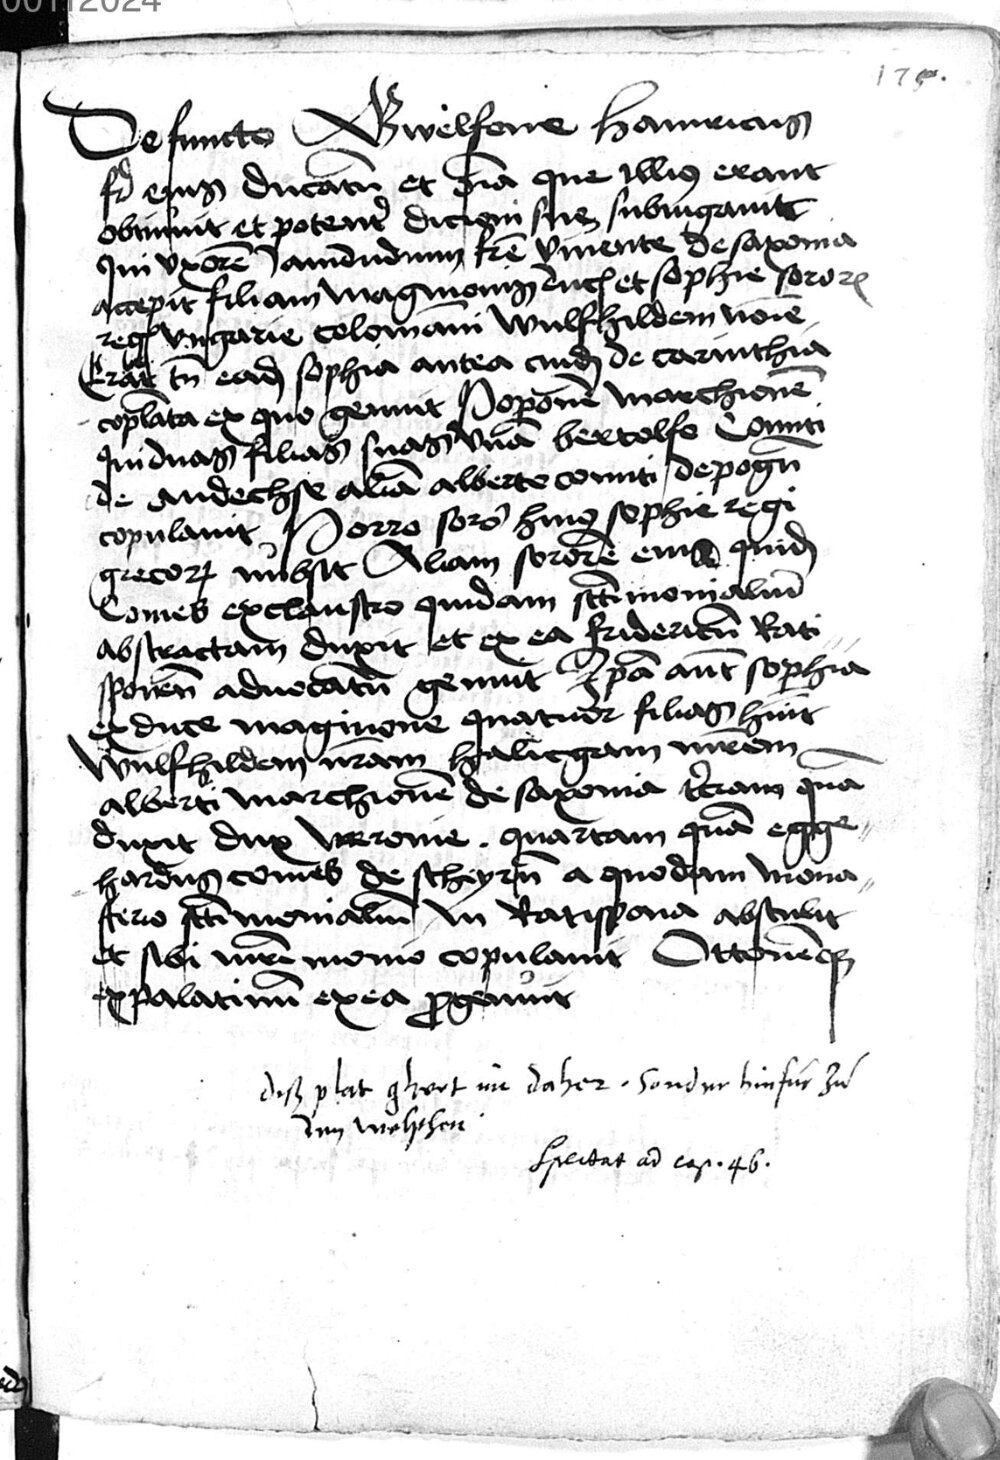 00112024
175.
Defuncto Gwelfone Hainricus
fr̄ eius ducatū et oīa que illius erant
obtinuit et potent̄ dicioni sue subiugauit
Qui vxorē Jamdudum frē viuente de saxonia
accepit filiam magnonis ducis et sophie sororis
regis vngarie colomāni wulfhildem noīe
Erat tn̄ eadē sophia antea cuidā de carinthia
copulata ex quo genuit Poponē marchionē
Qui duas filias suas vnā bertolfo Comiti
de andechse aliā alberto comiti de pogn̄
copulauit Porro soror huius sophie regi
grecorum nubsit Aliam sororē eius quidā
Comes ex claustro quodam sanctimonialiū
abstractam duxit et ex ea fridericū Rati
sponen̄ aduocatū genuit Ipā aūt sophia
ex duce magnone quatuor filias hūit
wulfhildem nr̄am hailicgam mr̄em
alberti marchionē de saxonia t̄ciam quā
duxit dux verone . quartam quā egge
hardus comes de scheyrn̄ a quodam mona
sterio sanctimonialiū in Ratispona abstulit
et sibi mr̄imonio copulauit Ottonēque
ex Palatinū ex ea progenuit
diß plat ghort nit daher . sonder hinfür zu
den welphen
spectat ad cap. 46.